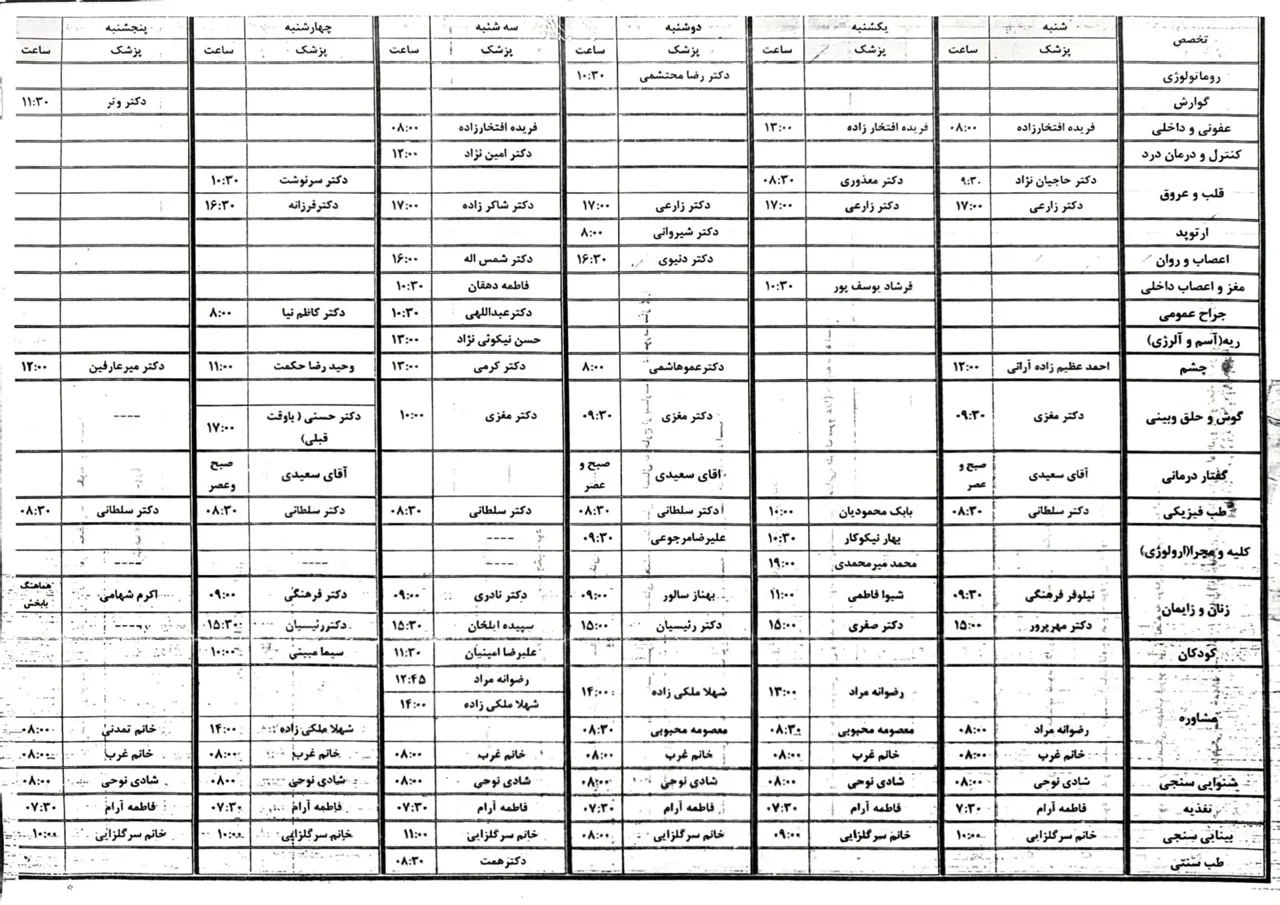 تخصص شنبه یکشنبه دوشنبه سه شنبه چهارشنبه پنجشنبه
پزشک ساعت پزشک ساعت پزشک ساعت پزشک ساعت پزشک ساعت پزشک ساعت
روماتولوژی دکتر رضا محتشمی ۱۰:۳۰
گوارش دکتر وتر ۱۱:۳۰
عفونی و داخلی فریده افتخارزاده ۰۸:۰۰ فریده افتخار زاده ۱۳:۰۰ فریده افتخارزاده ۰۸:۰۰
کنترل و درمان درد دکتر امین نژاد ۱۲:۰۰
قلب و عروق دکتر حاجیان نژاد ۹:۳۰ دکتر معذوری ۰۸:۳۰ دکتر سرنوشت ۱۰:۳۰
دکتر زارعی ۱۷:۰۰ دکتر زارعی ۱۷:۰۰ دکتر زارعی ۱۷:۰۰ دکتر شاکر زاده ۱۷:۰۰ دکترفرزانه ۱۶:۳۰
ارتوپد دکتر شیروانی ۸:۰۰
اعصاب و روان دکتر دنیوی ۱۶:۳۰ دکتر شمس اله ۱۶:۰۰
مغز و اعصاب داخلی فرشاد یوسف پور ۱۰:۳۰ فاطمه دهقان ۱۰:۳۰
جراح عمومی دکترعبداللهی ۱۰:۳۰ دکتر کاظم نیا ۸:۰۰
ریه(آسم و آلرژی) حسن نیکوئی نژاد ۱۳:۰۰
چشم احمد عظیم زاده آرانی ۱۲:۰۰ دکترعموهاشمی ۸:۰۰ دکتر کرمی ۱۳:۰۰ وحید رضا حکمت ۱۱:۰۰ دکتر میرعارفین ۱۲:۰۰
گوش و حلق وبینی دکتر مغزی ۰۹:۳۰ دکتر مغزی ۰۹:۳۰ دکتر مغزی ۱۰:۰۰ دکتر حسنی ( باوقت قبلی) ۱۷:۰۰ ----
گفتار درمانی آقای سعیدی صبح و عصر اقای سعیدی صبح و عصر آقای سعیدی صبح وعصر
طب فیزیکی دکتر سلطانی ۰۸:۳۰ بابک محمودیان ۱۰:۰۰ دکتر سلطانی ۰۸:۳۰ دکتر سلطانی ۰۸:۳۰ دکتر سلطانی ۰۸:۳۰ دکتر سلطانی ۰۸:۳۰
کلیه و مجرا(ارولوژی) بهار نیکوکار ۱۰:۳۰ علیرضامرجوعی ۰۹:۳۰ ----
محمد میرمحمدی ۱۹:۰۰ ---- ---- ----
زنان و زایمان نیلوفر فرهنگی ۰۹:۳۰ شیوا فاطمی ۱۱:۰۰ بهناز سالور ۰۹:۰۰ دکتر نادری ۰۹:۰۰ دکتر فرهنگی ۰۹:۰۰ اکرم شهامی هماهنگ بابخش
دکتر مهرپرور ۱۵:۰۰ دکتر صفری ۱۵:۰۰ دکتر رئیسیان ۱۵:۰۰ سپیده ایلخان ۱۵:۳۰ دکتررئیسیان ۱۵:۳۰ ----
کودکان علیرضا امینیان ۱۱:۳۰ سیما مبینی ۱۰:۰۰
مشاوره رضوانه مراد ۱۳:۰۰ شهلا ملکی زاده ۱۴:۰۰ رضوانه مراد ۱۲:۴۵
شهلا ملکی زاده ۱۴:۰۰
رضوانه مراد ۰۸:۰۰ معصومه محبوبی ۰۸:۳۰ معصومه محبوبی ۰۸:۳۰ شهلا ملکی زاده ۱۴:۰۰ خانم تمدنی ۰۸:۰۰
خانم غرب ۰۸:۰۰ خانم غرب ۰۸:۰۰ خانم غرب ۰۸:۰۰ خانم غرب ۰۸:۰۰ خانم غرب ۰۸:۰۰ خانم غرب ۰۸:۰۰
شنوایی سنجی شادی نوحی ۰۸:۰۰ شادی نوحی ۰۸:۰۰ شادی نوحی ۰۸:۰۰ شادی نوحی ۰۸:۰۰ شادی نوحی ۰۸۰۰ شادی نوحی ۰۸:۰۰
تغذیه فاطمه آرام ۷:۳۰ فاطمه آرام ۰۷:۳۰ فاطمه آرام ۰۷:۳۰ فاطمه آرام ۰۷:۳۰ فاطمه آرام ۰۷:۳۰ فاطمه آرام ۰۷:۳۰
بینایی سنجی خانم سرگلزایی ۱۰:۰۰ خانم سرگلزایی ۰۹:۰۰ خانم سرگلزایی ۰۸:۰۰ خانم سرگلزایی ۱۱:۰۰ خانم سرگلزایی ۱۰:۰۰ خانم سرگلزایی ۱۰:۰۰
طب سنتی دکترهمت ۰۸:۳۰